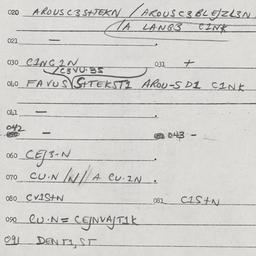 020 AROUSC3S+TEKN / AROUSC3BLE/ZL3N
/A LANG3 C1NK
021 —
030 C1NG2N 031 +
/C3VU.B5
040 FAVUS/S+TEKST1 AROU-SD1 C1NK
041 —
042 — 043 –
060 CE/3-N
070 CU.N /N// A CU.2N .
080 CV1S+N 081 C1S+N
090 CU.N = CE/NVA/T1K
091 DENT1,ST